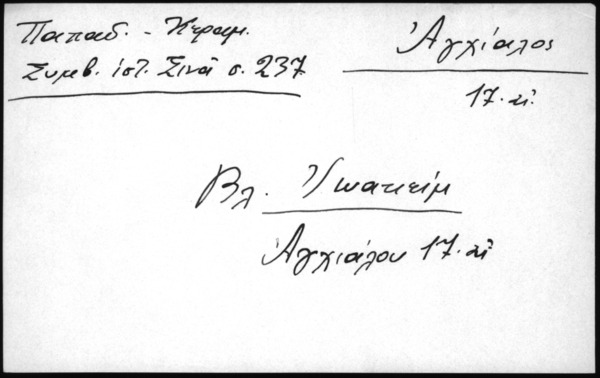 Παπαδ. - Κεραμ.
Συμβ. ἱστ. Σινᾶ σ. 237
Ἀγχίαλος
17. αἰ.
Βλ. Ἰωακεὶμ
Ἀγχιάλου 17. αἰ